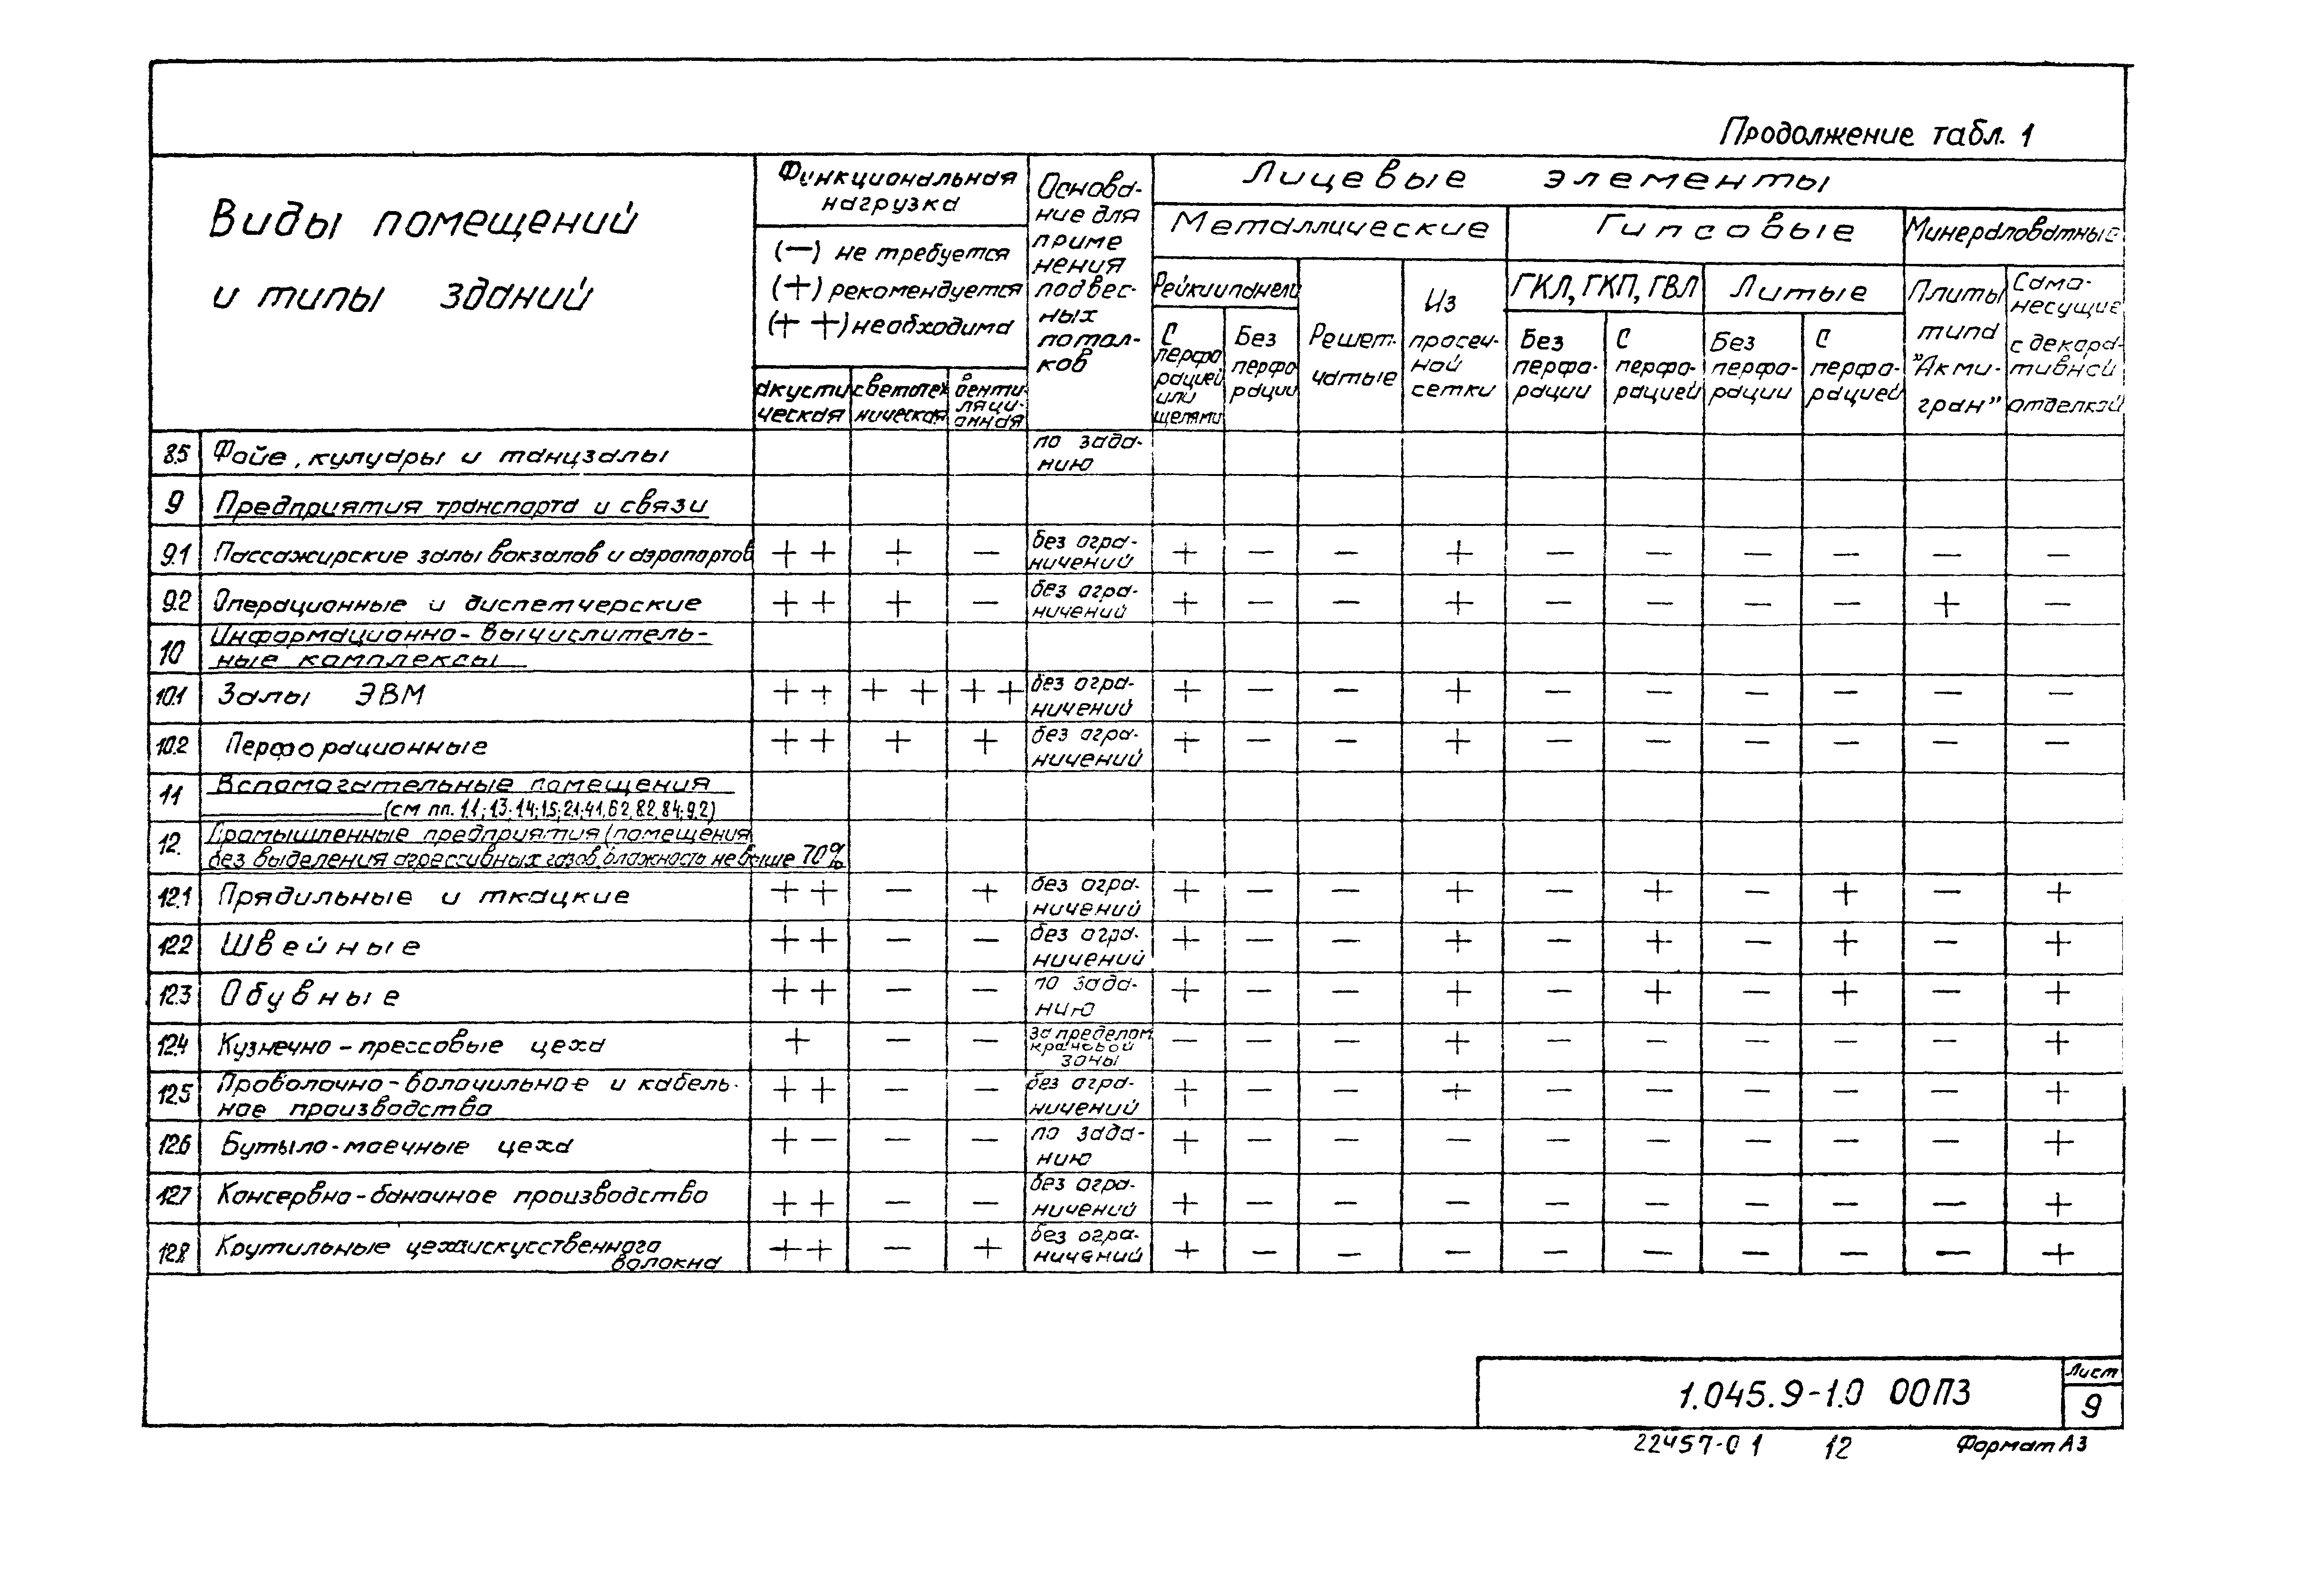 Продолжение табл. 1
Виды помещений
и типы зданий
Функциональная
нагрузка
(—) не требуется
(+) рекомендуется
(+ +) необходима
акусти
ческая
светотех
ническая
венти-
ляци-
онная
Основа-
ние для
приме
нения
подвес-
ных
потол-
ков
Лицевые элементы
Металлические
Гипсовые
Минераловатные
Рейки и панели
Решет-
чатые
Из
просеч-
ной
сетки
ГКЛ, ГКП, ГВЛ
Литые
Плиты
типа
"Акми-
гран"
Само-
несущие
с декора-
тивной
отделкой
С
перфо
рацией
или
щелями
Без
перфо
рации
Без
перфо-
рации
С
перфо-
рацией
Без
перфо-
рации
С
перфо-
рацией
8.5 Фойе, кулуары и танцзалы по зада-
нию
9 Предприятия транспорта и связи
9.1 Пассажирские залы вокзалов и аэропортов + + + — без огра-
ничений + — — + — — — — — —
9.2 Операционные и диспетчерские + + + — без огра-
ничений + — — + — — — — + —
10 Информационно-вычислитель-
ные комплексы
10.1 Залы ЭВМ + + + + + + без огра-
ничений + — — + — — — — — —
10.2 Перфорационные + + + + без огра-
ничений + — — + — — — — — —
11 Вспомогательные помещения
(см пп. 1.1; 1.3; 1.4; 1.5; 2.1; 4.1, 6.2, 8.2, 8.4; 9.2)
12. Промышленные предприятия (помещения
без выделения агрессивных газов, влажность не выше 70%
12.1 Прядильные и ткацкие + + — + без огра-
ничений + — — + — + — + — +
12.2 Швейные + + — — без огра-
ничений + — — + — + — + — +
12.3 Обувные + + — — по зада-
нию + — — + — + — + — +
12.4 Кузнечно-прессовые цеха + — — за пределом
крановой
зоны — — — + — — — — — +
12.5 Проволочно-волочильное и кабель-
ное производства + + — — без огра-
ничений + — — + — — — — — +
12.6 Бутыло-моечные цеха + — — — по зада-
нию + — — — — — — — — +
12.7 Консервно-баночное производство + + — — без огра-
ничений + — — — — — — — — +
12.8 Крутильные цеха искусственного
волокна + + — + без огра-
ничений + — — — — — — — — +
1.045.9-1.0 00ПЗ
Лист
9
22457-01 12 Формат А3